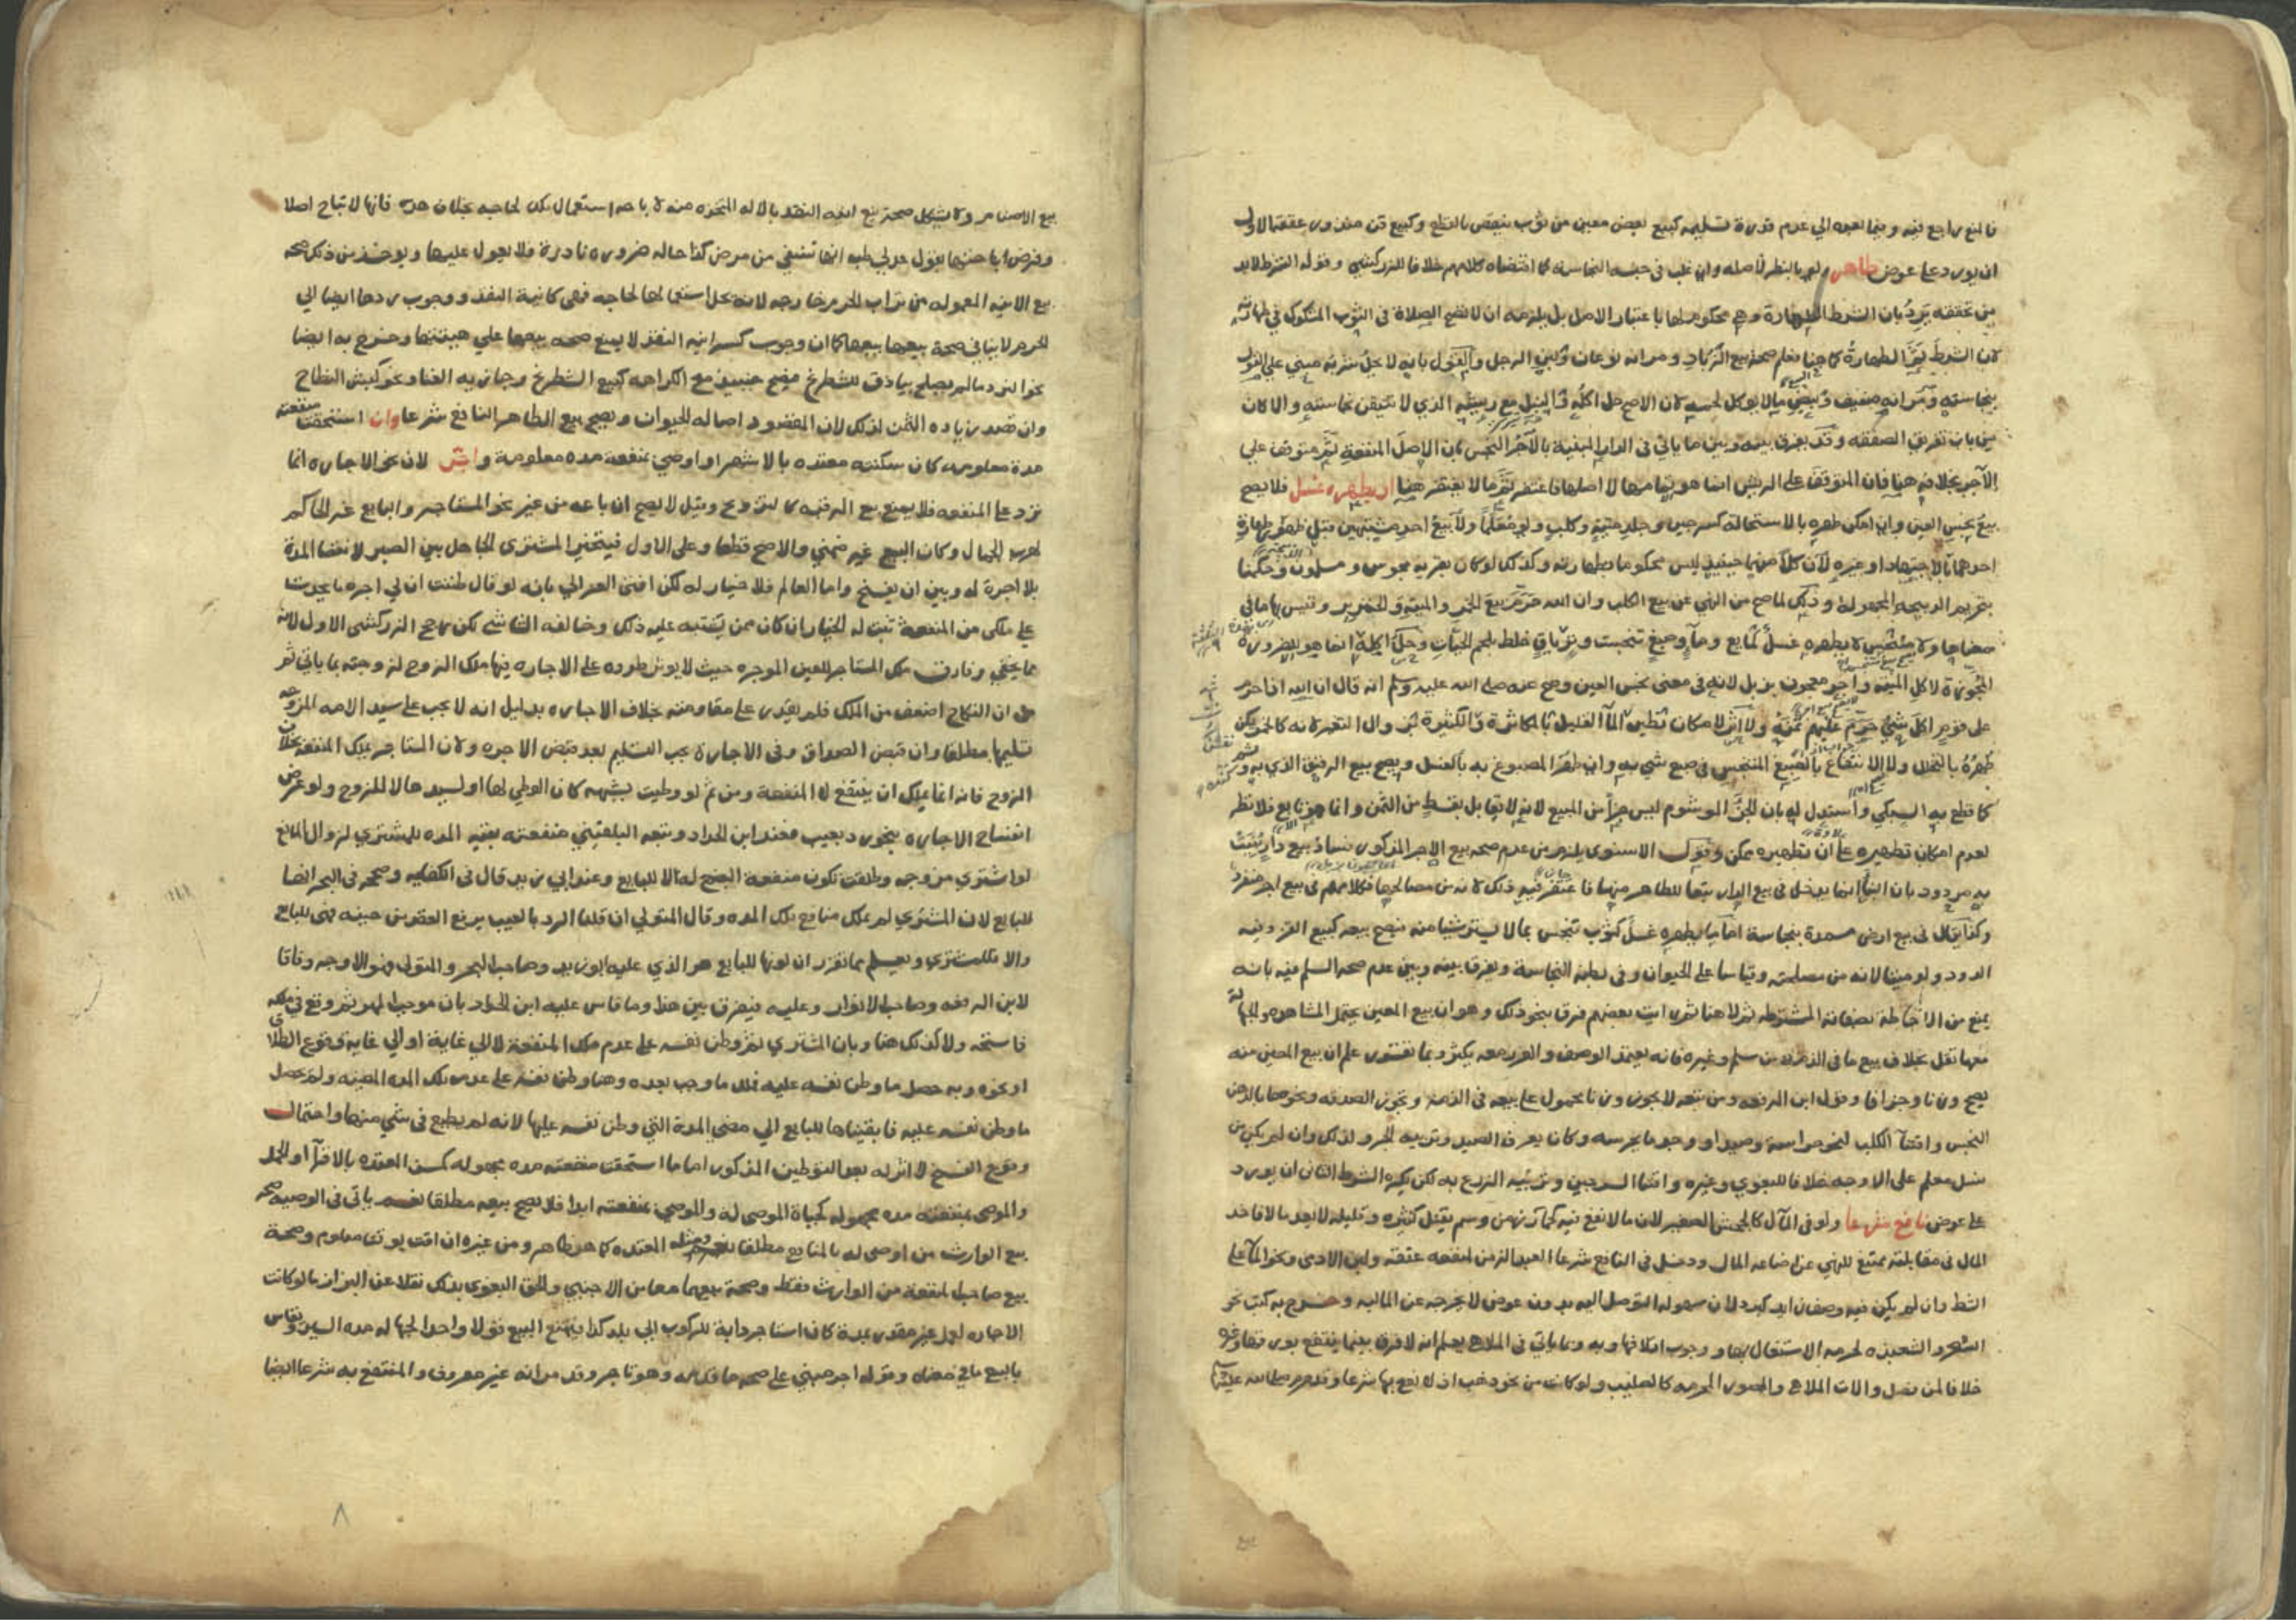 فالمنع راجع فيه وبيما بعده الي عدم قدرة تسليمه كبيع بعض معين من ثوب ينقص بالقطع وكبيع قن
ان يورد علي عوض طاهر ولو بالنظر لاصله وان غلب في جنسه النجاسة كما اقتضاه كلامهم خلافا للزركشي وقوله الشرط لابد
من تحققه يرد بان الشرط الطهارة وهي محكوم لها باعتبار الاصل بل يلزمه ان لا تصح الصلاة في الثوب المشكوك في طهارته
لان الشرط الطهارة كما هنا فعلم صحة بيع الزباد ومر انه نوعان ولبن الرجل والقول بانه لا يحل شربه مبني علي القول
بنجاسته ومر انه ضعيف وبيض ما لا يوكل لحمه لان الاصح حل اكله مع الذي لا نتيقن نجاسته والا كان
من باب تفريق الصفقة وقد يفرق بينه وبين ما ياتي في الدار المبنية بالآجر النجس بان الاصل المنفعة ثم متوقف علي
الآجر بخلافه هنا فان المتوقف علي الريش انما هو لا اصلها فاغتفر ثم ما لا يغتفر هنا ان يطهره غسل فلا يصح
بيع نجس العين وان امكن طهره بالاستحالة كسرجين وجلد ميتة وكلب ولو معلما ولا بيع احد مشتبهين قبل ظهور طهارة
احدهما بالاجتهاد او غيره لان كلا منهما حينيذ ليس محكوما بطهارته وكذلك لو كان بقرية مجوس ومسلمون وحكمنا
بتحريم الذبيحة المجهولة وذلك لما صح من النهي عن بيع الكلب وان الله حرم بيع الخمر والميتة والخنزير وقيس بها ما في
معناها ولا متنجس لا يطهره غسل كمايع وماء وصبغ تنجست وترياق خلط بلحم الحيات وحل اكله انما هو للضرورة
المجوزة لاكل الميتة وآجر معجون بزبل لانه في معني نجس العين وصح عنه صلي الله عليه وسلم انه قال ان الله اذا حرم
علي قوم اكل شي حرم عليهم ثمنه ولا اثر لامكان تطهير الماء القليل بالمكاثرة والكثير بزوال التغير لانه كالخمر يمكن
طهره بالتخلل ولا للانتفاع بالصبغ المتنجس في صبغ شي به وان طهر المصبوغ به بالغسل ويصح بيع الرقيق الذي به وشم
كما قطع به السبكي واستدل له بان الجزء الموشوم ليس جزأ من المبيع لانه لا يقابل بقسط من الثمن وانما هو تابع فلا نظر
لعدم امكان تطهيره علي ان تطهيره ممكن وقول الاسنوي يلزم من عدم صحة بيع الاجر المذكور فساد بيع دار بنيت
به مردود بان البناء انما يدخل في بيع الدار تبعا للطاهر منها فاغتفر فيه ذلك لانه من مصالحها فكلامهم في بيع اجر منفرد
وكذا يقال في بيع ارض مسمدة بنجاسة اما ما يطهره غسل كثوب تنجس بما لا يستر شيا منه فيصح بيعه كبيع القز وفيه
الدود ولو ميتا لانه من مصلحته وقياسا علي الحيوان وفي بطنه النجاسة ويفرق بينه وبين عدم صحة السلم فيه بانه
يمنع من الاحاطة بصفاته المشترطة ثم لا هنا ثم رايت بعضهم فرق بنحو ذلك وهو ان بيع المعين يحتمل المشاهدة والجهالة
معها تقل بخلاف بيع ما في الذمة من سلم وغيره فانه يعتمد الوصف والغرر معه يكثر وبما تقرر علم ان بيع المعين منه
يصح وزنا وجزافا وقول ابن الرفعة ومن تبعه لا يجوز وزنا محمول علي بيعه في الذمة وتجوز الصدقة ونحوها بالدهن
النجس واقتناء الكلب لنحو حراسة وصيد او وجد ما يحرسه وكان يعرف الصيد وتربية الجرو لذلك وان لم يكن من
نسل معلم علي الاوجه خلافا للبغوي وغيره واقتناء السرجين وتربية الزرع به لكن يكره الشرط الثاني ان يورد
علي عوض نافع شرعا ولو في المآل كالجحش الصغير لان ما لا نفع فيه كما ترمن وسم يقتل كثيره وقليله لا يعد مالا فاخذ
المال في مقابلته ممتنع للنهي عن اضاعة المال ودخل في النافع شرعا العبد الزمن لمنفعة عتقه ولبن الادمي ونحو الماء علي
الشط وان لم يكن فيه وصفان لان سهولة التوصل اليه بدون عوض لا يخرجه عن المالية وخرج به كتب نحو
السحر والشعبذة لحرمة الاشتغال بها ووجوب اتلافها وبه وبما ياتي في الملاهي يعلم انه لا فرق بينما ينتفع بورقها وغيره
خلافا لمن فصل والات الملاهي والصور المحرمة كالصليب ولو كانت من نحو ذهب اذ لا نفع بها شرعا وقد حرم صلي الله عليه وسلم
بيع الاصنام ولا يشكل صحة بيع انية النقد بالالة المتخذة منه لاباحة استعمال تلك لحاجة بخلاف هذه فانها لا تباح اصلا
وفرض اباحتها بقول عدلي طب انها تشفي من مرض كذا حالة ضرورة نادرة فلا يعول عليها ويوخذ من ذلك صحة
بيع الانية المعمولة من تراب الحرم خارجه لانه يحل استعمالها لحاجة فهي كانية النقد ووجوب ردها ايضا الي
الحرم لا ينافي صحة بيعها كما ان وجوب كسر انية النقد لا يمنع صحة بيعها علي هيئتها وخرج به ايضا
نحو النرد ما لم يصلح بياذق للشطرنج فيصح حينيذ مع الكراهة كبيع الشطرنج وجارية الغنا ونحو كبش النطاح
وان قصد زيادة الثمن لذلك لان المقصود اصالة الحيوان ويصح بيع الطاهر النافع شرعا وان استحقت منفعته
مدة معلومة كان سكنته معتدة بالاشهر او اوصي بمنفعته مدة معلومة واجر لان نحو الاجارة انما
ترد علي المنفعة فلا يمنع بيع الرقبة كالتزويج وقيل لا يصح ان باعه من غير نحو المستاجر والبايع غير الحاكم
لهرب الجمال وكان البيع غير ضمني والاصح قطعا وعلي الاول فيتخير المشتري الجاهل بين الصبر لانقضا المدة
بلا اجرة له وبين ان يفسخ واما العالم فلا خيار له لكن افتي الغزالي بانه لو قال ظننت ان لي اجرة ما يحدث
علي ملكي من المنفعة ثبت له الخيار ان كان ممن يشتبه عليه ذلك وخالفه الشاشي لكن رجح الزركشي الاول لانه
مما يخفي وفارق ملك المستاجر للعين الموجرة حيث لا يوثر طروه علي الاجارة فيها ملك الزوج لزوجته بما ياتي ثم
من ان النكاح اضعف من الملك فلم يقدر علي مقاومته بخلاف الاجارة بدليل انه لا يجب علي سيد الامة المزوجة
تسليمها مطلقا وان قبض الصداق وفي الاجارة يجب التسليم بعد قبض الاجرة ولان المستاجر يملك المنفعة بخلاف
الزوج فانه انما يملك ان ينتفع لا المنفعة ومن ثم لو وطيت بشبهة كان الوطي لها او لسيدها لا للزوج ولو عرض
انفساخ الاجارة بنحو رد بعيب فعند ابن الحداد وتبعه البلقيني منفعته بقية المدة للمشتري لزوال المانع
لو اشتري مزوجة وطلقت تكون منفعة البضع له لا للبايع وعند ابي زيد قال في الكفاية وصححه في البحر انها
للبايع لان المشتري لم يملك منافع تلك المدة وقال المتولي ان قلنا الرد بالعيب يرفع العقد من حينه فهي للبايع
والا فللمشتري ويعلم مما تقرر ان كونها للبايع هو الذي عليه ابو زيد وصاحبا البحر والمتولي وهو الاوجه وفاقا
لابن الرفعة وصاحب الانوار وعليه فيفرق بين هذا وما قاس عليه ابن الحداد بان موجب لهو ثم وقع في ملكه
فاستحقه ولا كذلك هنا وبان المشتري ثم وطن نفسه علي عدم ملك المنفعة لا الي غاية او الي غاية وقوع الطلاق
او نحوه وبه حصل ما وطن نفسه عليه فملك ما وجب بعده وهنا وطن نفسه علي عدم ملك المدة المعينة ولم يحصل
ما وطن نفسه عليه فابقيناها للبايع الي مضي المدة التي وطن نفسه عليها لانه لم يطمع في شي منها واحتمال
وقوع الفسخ لا اثر له بعد التوطين المذكور اما ما استحقت منفعته مدة مجهولة كسكن المعتدة بالاقراء او الحمل
والموصي بمنفعته مدة مجهولة كحياة الموصي له والموصي بمنفعته ابدا فلا يصح بيعه مطلقا نعم ياتي في الوصية صحة
بيع الوارث من اوصي له بالمنافع مطلقا ومثله المعتدة كما هو ظاهر ومن غيره ان اقت بوقت معلوم وصحة
بيع صاحب المنفعة من الوارث فقط وصحة بيعهما معا من الاجنبي والحق البغوي بذلك نقلا عن البزار ما لو كانت
الاجارة لعمل غير مقدر بمدة كان استاجر دابة للركوب الي بلد كذا فيمتنع البيع قولا واحدا لجهالة مدة السير وقاس
بالبيع ما في معناه وقوله اجر مبني علي صحة ما قدمه وهو تاجر وقد مر انه غير معروف والمنتفع به شرعا ايضا